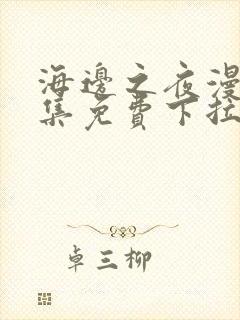 海邊之夜漫
集免費下拉
卓三柳